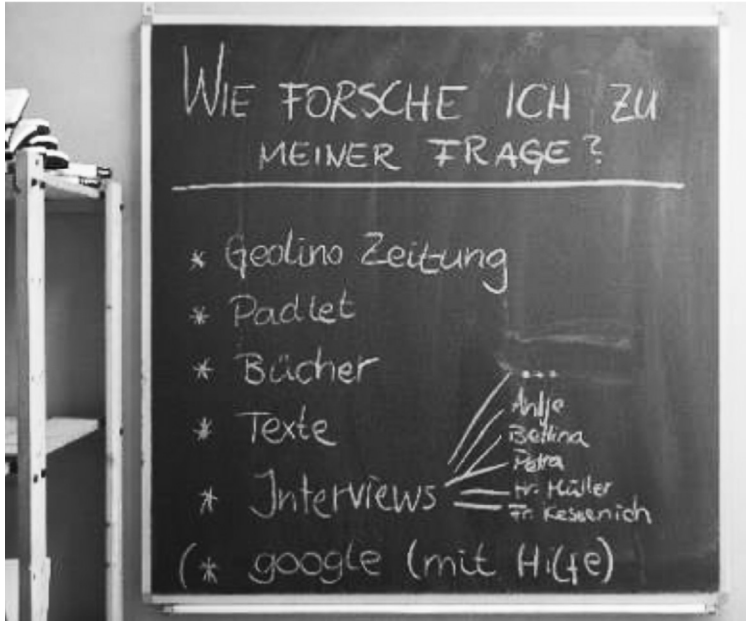 WIE FORSCHE ICH ZU
MEINER FRAGE?
* Geolino Zeitung
* Padlet
* Bücher
* Texte
* Interviews
...
Antje
Bettina
Petra
Hr. Müller
Fr. Kessenich
(* google (mit Hilfe)